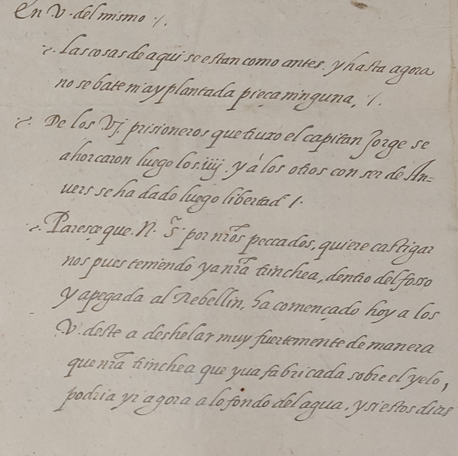 En V. del mismo /.
Las cosas de aqui se estan como antes. y hasta agora
no se bate ni ay plantada pieça ninguna, /.
De los Vj. prisioneros que tuuo el capitan Jorge se
ahorcaron luego los .iiij. y á los otros con ser de An=
uers se ha dado luego libertad /.
Paresçe que N. S.r por nr̃os peccados, quiere castigar
nos pues teniendo ya nr̃a trinchea, dentro del fosso
y apegada al Rebellin, ha començado hoy a los
V. deste a deshelar muy fuertemente de manera
que nr̃a trinchea que yua fabricada sobre el yelo,
podria yr agora a lo fondo del agua, y si estos dias